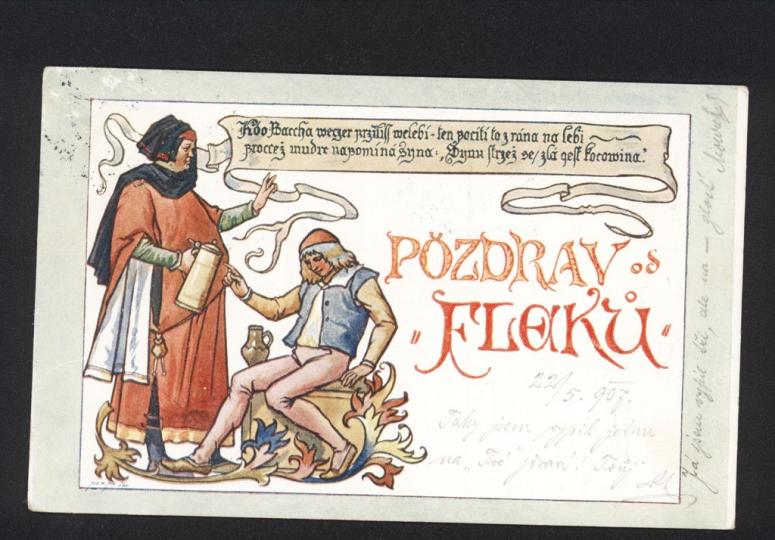 Kdo Baccha weczer przilliss welebi - ten pociti to z rána na lebi
procez mudre napomina Syna: „Synu strzez se, zlá gest kocowina."
POZDRAV OD
„FLEKŮ"
22/5. 907.
Taky jsem vypil jednu
na „Tvé" zdraví! Tvůj
Já jsem vypil též, ale na